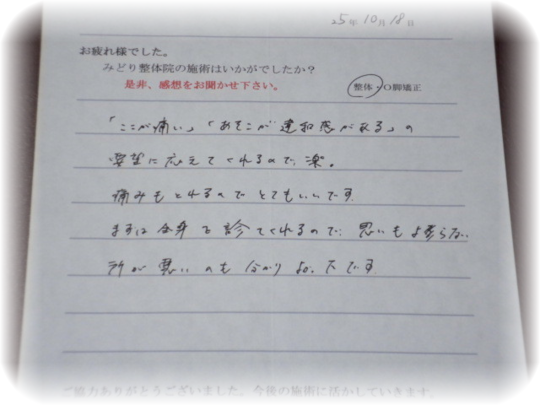 25年10月18日
お疲れ様でした。
みどり整体院の施術はいかがでしたか？
是非、感想をお聞かせ下さい。
整体・O脚矯正
「ここが痛い」「あそこが違和感がある」の
要望に応えてくれるので、楽。
痛みもとれるのでとてもいいです。
まずは全身を診てくれるので、思いもよらない
所が悪いのも分かりよかったです
ご協力ありがとうございました。今後の施術に活かしていきます。